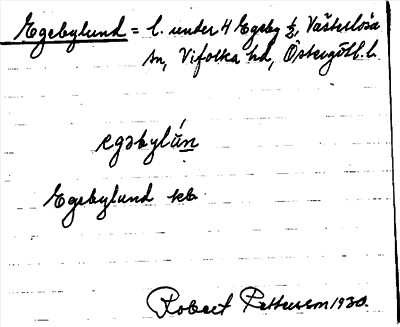 Egebylund = l. under 4 Egeby ½, Västerlösa
sn, Vifolka hd, Östergötl. l.
egəbylún
Egebylund kb
Robert Pettersson 1930.